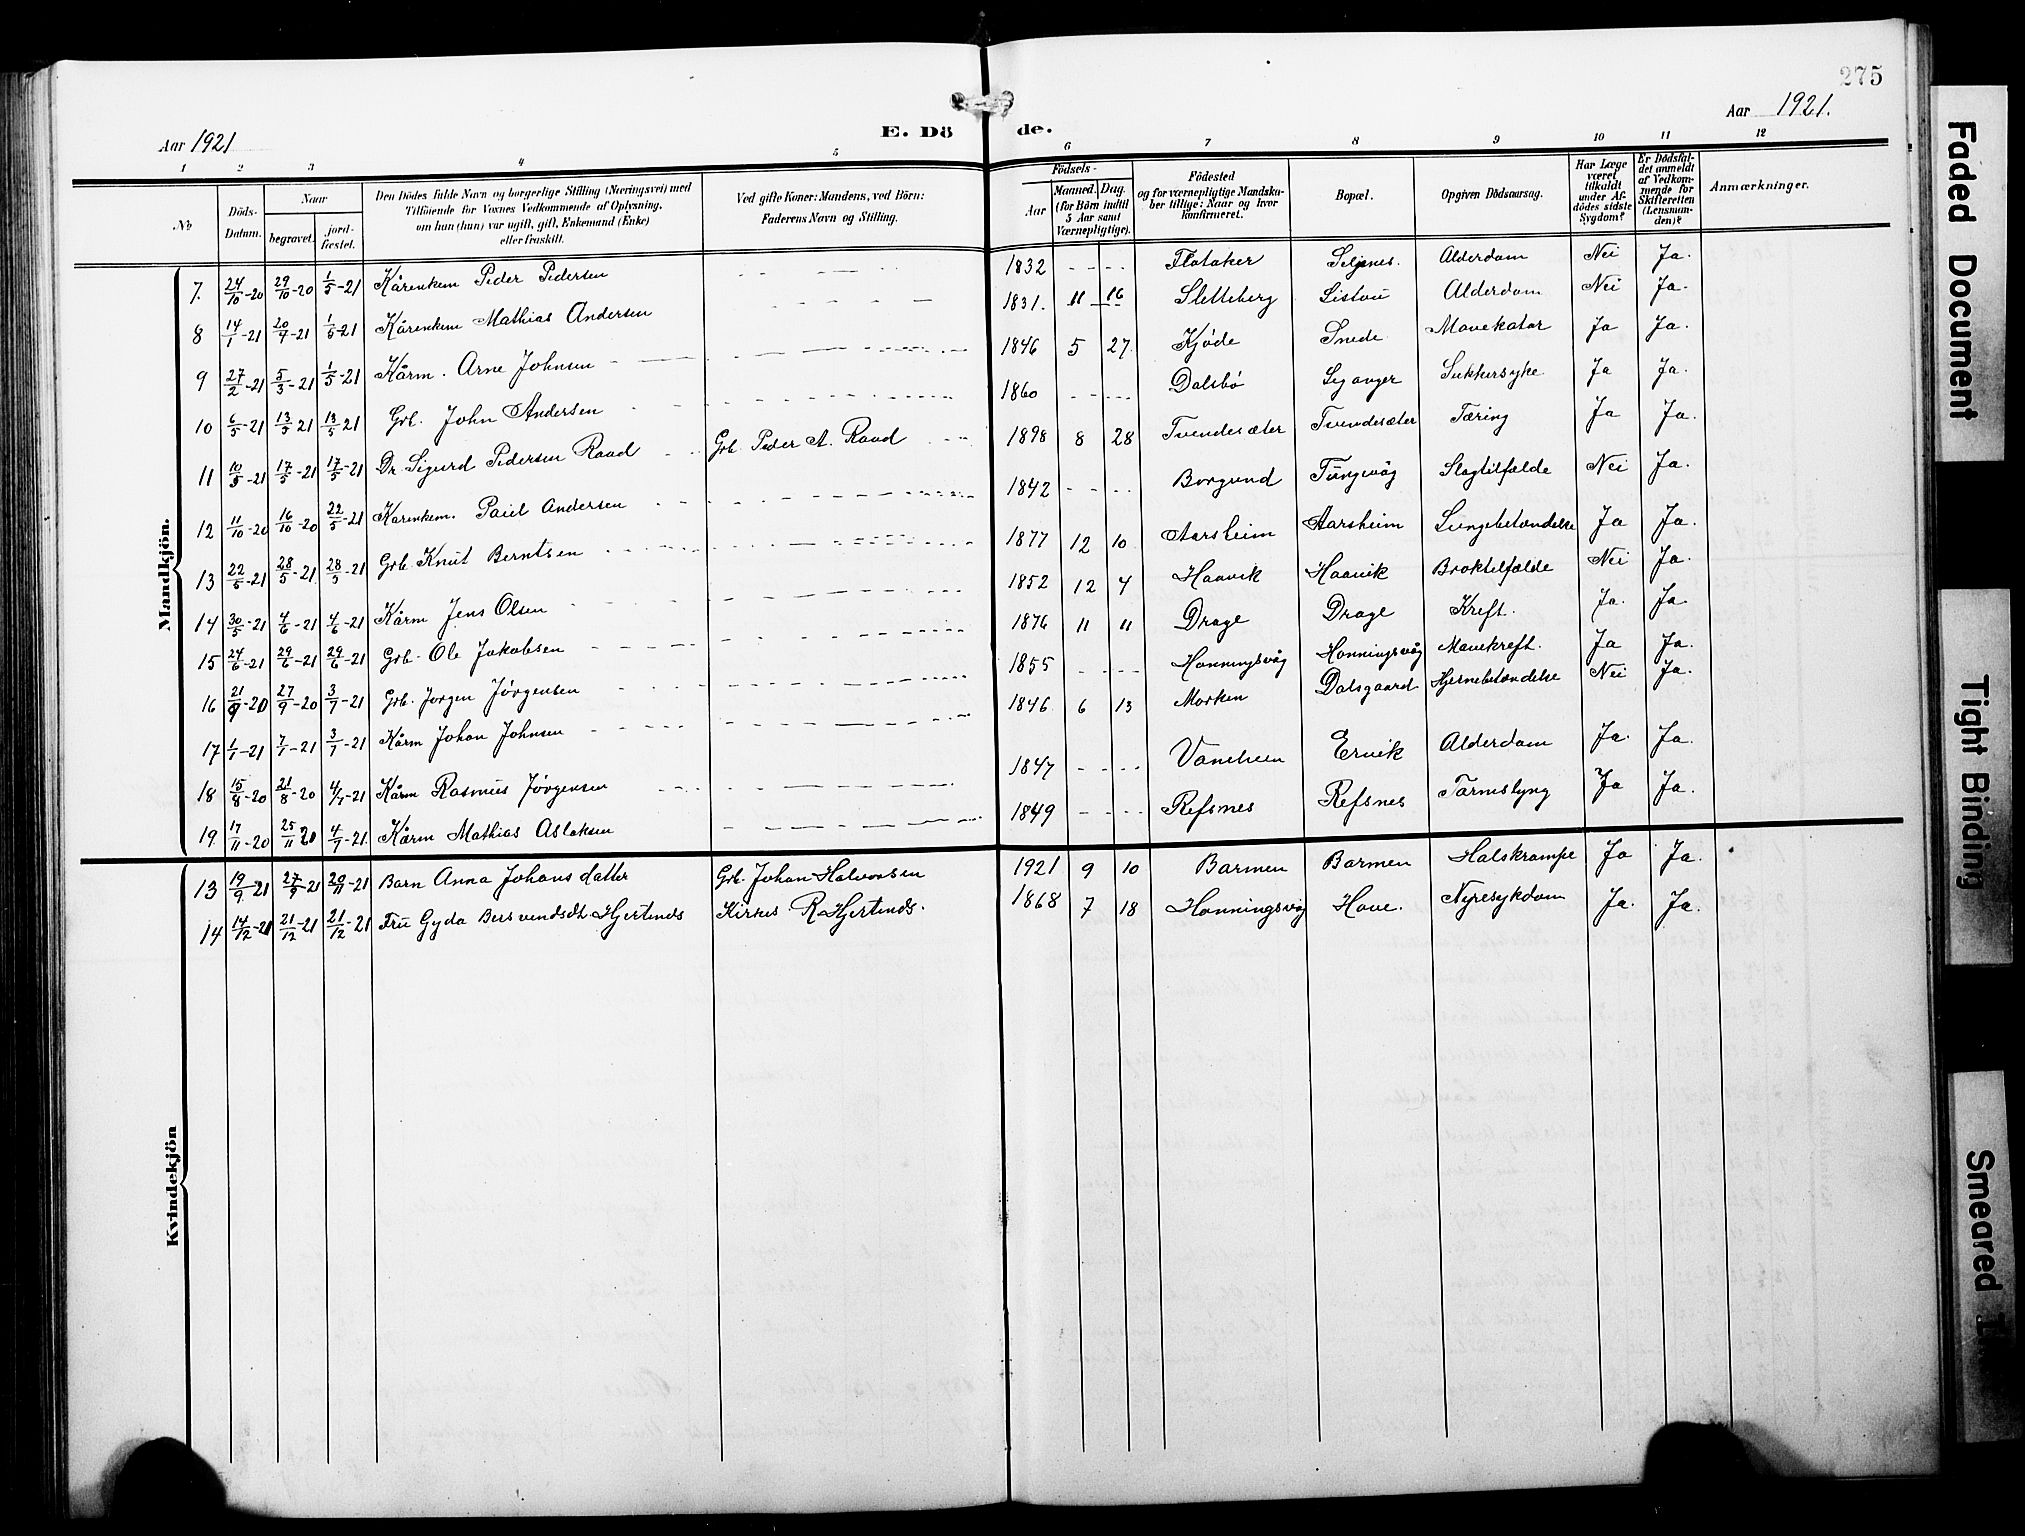 275
Aar 1921
E. Dö de.
Aar 1921.
1 2 3 4 5 6 7 8 9 10 11 12
No
Döds-Datum.
Naar
begravet.
jord-fæstet.
Den Dödes fulde Navn og borgerlige Stilling (Næringsvei) med Tilföiende for Voxnes Vedkommende af Oplysning, om han (hun) var ugift, gift, Enkemand (Enke) eller fraskilt.
Ved gifte Koner: Mandens, ved Börn: Faderens Navn og Stilling.
Födsels-
Aar
Maaned. Dag. (for Börn indtil 5 Aar samt Værnepligtige).
Födested og for værnepligtige Mandskaber tillige: Naar og hvor konfirmeret.
Bopæl.
Opgiven Dödsaarsag.
Har Læge været tilkaldt under Afdödes sidste Sygdom?
Er Dödsfaldet anmeldt af Vedkommende for Skifteretten (Lensmanden)?
Anmærkninger.
Mandkjön.
7. 24/10-20 29/10-20 1/5-21 Kårenkem Peder Pedersen 1832 Flataker Seljenes. Alderdom Nei Ja.
8 14/1-21 20/4-21 1/5-21 Kårenkem Mathias Andersen 1831. 11 16 Sletteberg Listou Alderdom Nei Ja.
9 27/2-21 5/3-21 1/5-21 Kårm. Arne Johnsen 1846 5 27 Kjøde Snede Mavekatar Ja Ja.
10 6/5-21 13/5 21 13/5-21 Grb. John Andersen 1860 Dalsbø Leganger Sukkersyke Ja Ja.
11 10/5-21 17/5-21 17/5-21 Dr. Sigurd Pedersen Raad Grb. Peder A. Raad 1898 8 28 Tvendesæter Tvendesæter Tæring Ja Ja.
12 11/10-20 16/10-20 22/5-21 Karenkem. Paul Andersen 1842 Borgund Tungevåg Slagtilfælde Nei Ja.
13 22/5-21 28/5-21 28/5-21 Grb. Knut Berntsen 1877 12 10 Aarsheim Aarsheim Lungebetændelse Ja Ja.
14 30/5-21 4/6-21 4/6-21 Kårm Jens Olsen 1852 12 4 Haavik Haavik Broktilfælde Nei Ja.
15 24/6-21 29/6-21 29/6-21 Grb. Ole Jakobsen 1876 11 11 Drage Drage Kreft. Ja. Ja
16 21/9-20 27/9-20 3/7-21 Grb. Jørgen Jørgensen 1855 Honningsvåg Honningsvåg Mavekreft. Ja Ja.
17 1/1-21 7/1-21 3/7-21 Kårm Johan Johnsen 1846 6 13 Morken Dalsgaard Hjernebetændelse Nei Ja.
18 15/8-20 21/8-20 4/7-21 Kårm Rasmus Jørgensen 1847 Ervik Alderdom Ja. Ja.
19. 17/11-20 25/11 20 4/7-21 Kårm Mathias Aslaksen 1849 Refsnes Refsnes Tarmslyng Ja Ja.
Kvindekjön
13 19/9-21 27/9-21 20/11-21 Barn Anna Johansdatter Grb. Johan Halvorsen 1921 9 10 Barmen Barmen Halskrampe Ja Ja.
14 14/12-21 21/12-21 21/12-21 Fru Gyda Hjertenes Kirkes. R Hjertenes. 1868 7 18 Honningsvåg Hove. Nyresykdom Ja. Ja.
Faded Document
Tight Binding
Smeared